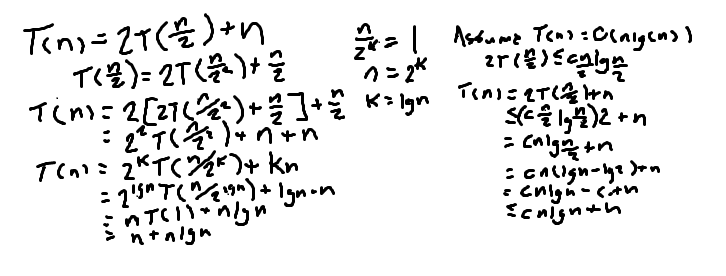 T(n) = 2T(n/2) + n
T(n/2) = 2T(n/2²) + n/2
T(n) = 2[2T(n/2²) + n/2] + n/2
= 2²T(n/2²) + n + n
T(n) = 2^k T(n/2^k) + kn
= 2^lgn T(n/2^lgn) + lgn·n
= nT(1) + nlgn
= n + nlgn
n/2^k = 1
n = 2^k
k = lgn
Assume T(n) = O(nlg(n))
2T(n/2) ≤ c n/2 lg n/2
T(n) = 2T(n/2) + n
≤ (c n/2 lg n/2)2 + n
= cnlg n/2 + n
= cn(lgn - lg2) + n
= cnlgn - c + n
≤ cnlgn + n